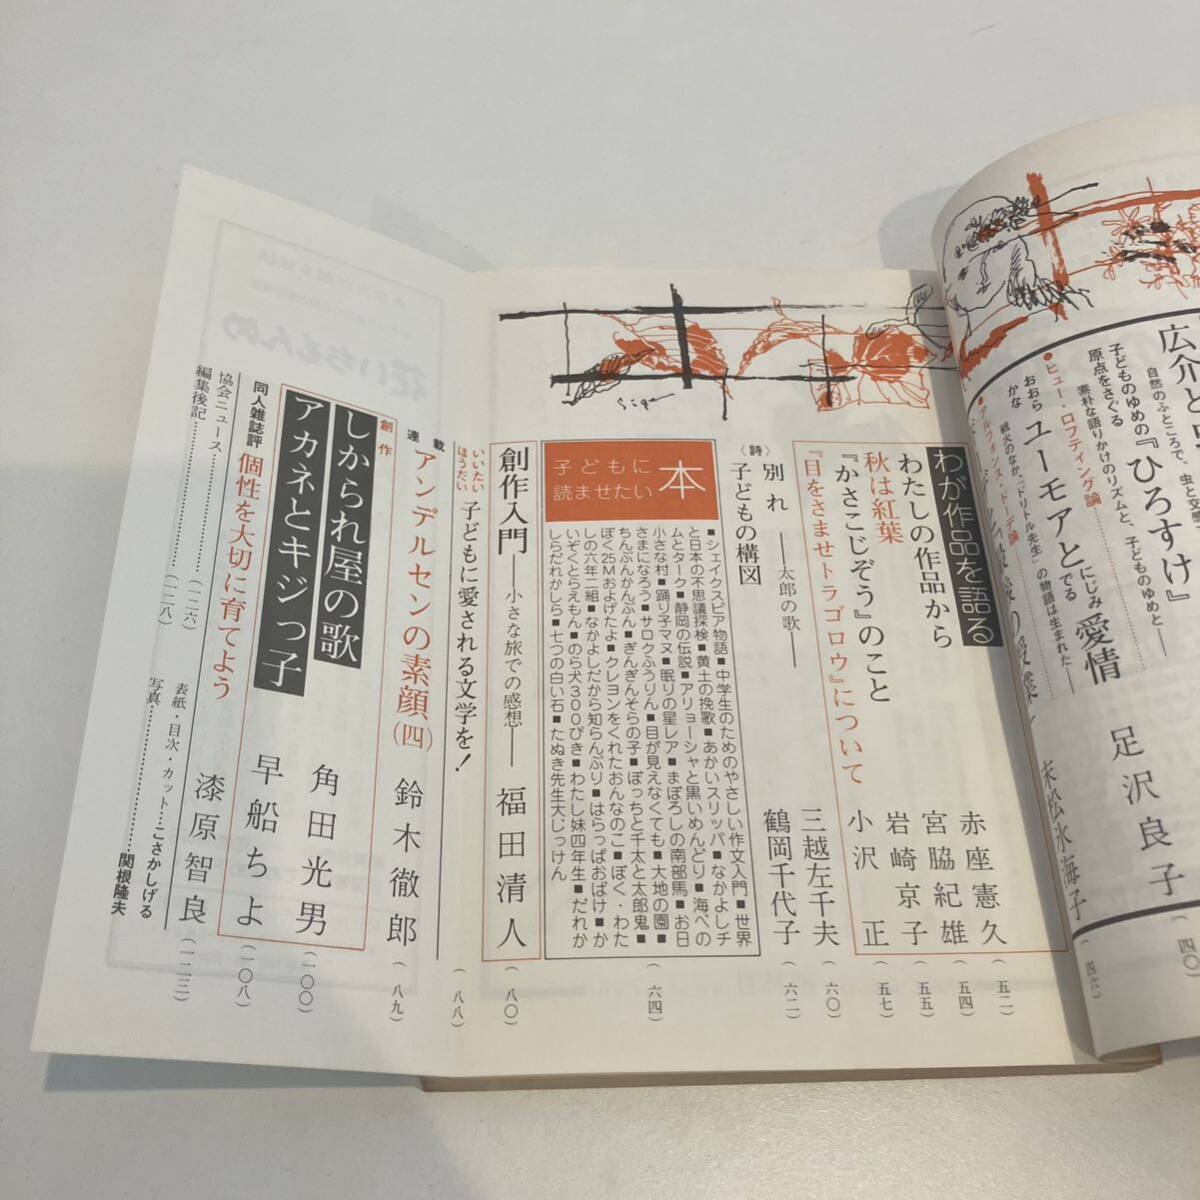 広介と
自然のふところで、虫と交感
『ひろすけ』
子どものゆめの
原点をさぐる
素朴な語りかけのリズムと、子どものゆめと――
足沢良子
(四〇)
●ヒュー・ロフティング論
ユーモアと愛情
おおらかな
にじみでる
戦火のなか、『ドリトル先生』の物語は生まれた――
末松氷海子
(四六)
●アルフォンス・ドーデ論
わが作品を語る
赤座憲久
(五二)
わたしの作品から
宮脇紀雄
(五四)
『かさこじぞう』のこと
岩崎京子
(五五)
秋は紅葉
『目をさませトラゴロウ』について
小沢正
(五七)
〈詩〉
別れ――太郎の歌――
三越左千夫
(六〇)
子どもの構図
鶴岡千代子
(六二)
子どもに
読ませたい
本
■シェイクスピア物語■中学生のためのやさしい作文入門■世界
と日本の不思議探検■黄土の挽歌■あかいスリッパ■なかよしチ
ムとターク■静岡の伝説■アリョーシャと黒いめんどり■海べの
小さな村■踊り子マヌ■眠りの星レア■まぼろしの南部馬■お日
さまになろう■サロクふうりん■目が見えなくても■大地の園■
ちんぷんかんぷん■ぎんぎんそらの子■ぼっちと千太と太郎鬼■
ぼく25Mおよげたよ■クレヨンをくれたおんなのこ■ぼく・わた
しの六年二組■なかよしだから知らんぷり■はらっぱおばけ■か
いぞくとらえもん■のら犬300ぴき■わたし妹四年生■だれか
しらだれかしら■七つの白い石■たぬき先生大じっけん
(六四)
創作入門――小さな旅での感想――
福田清人
(八〇)
いいたい
ほうだい
子どもに愛される文学を!
(八八)
連載
アンデルセンの素顔(四)
鈴木徹郎
(八九)
創作
しかられ屋の歌
角田光男
(一〇〇)
アカネとキジっ子
早船ちよ
(一〇八)
同人雑誌評
個性を大切に育てよう
漆原智良
(一二三)
協会ニュース
(一二六)
編集後記
(一二八)
表紙・目次・カット……こさかしげる
写真……関根隆夫